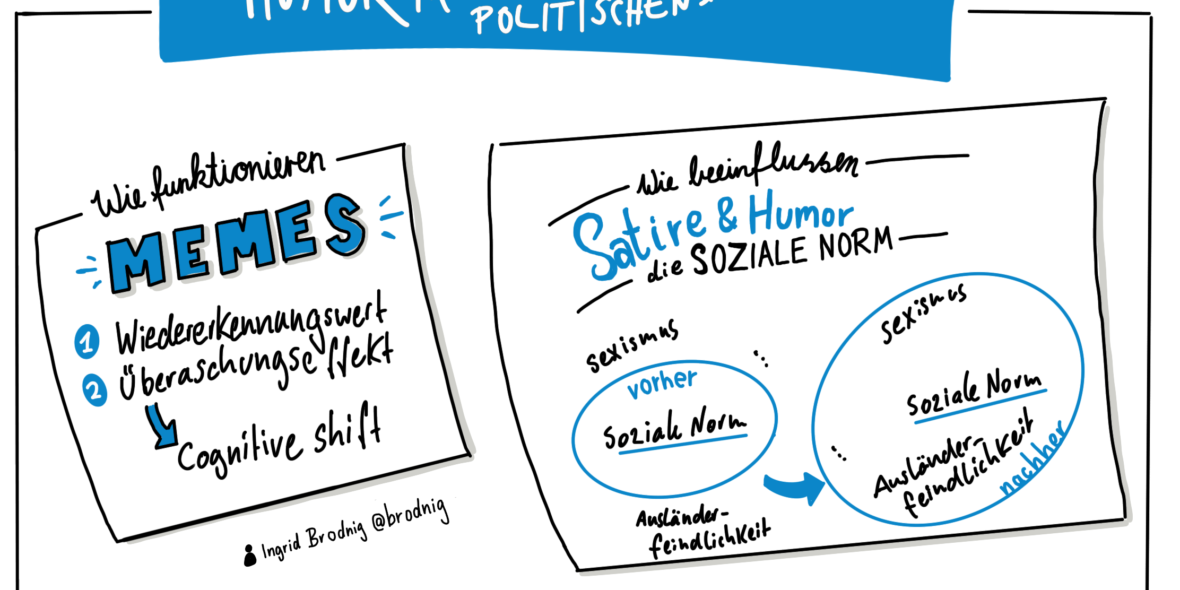 POLITISCHEN
Wie funktionieren
MEMES
1 Wiedererkennungswert
2 Überaschungseffekt
Cognitive shift
Ingrid Brodnig @brodnig
Wie beeinflussen
Satire & Humor
die SOZIALE NORM
sexismus
vorher
Soziale Norm
Ausländer-
feindlichkeit
sexismus
Soziale Norm
Ausländer-
feindlichkeit
nachher